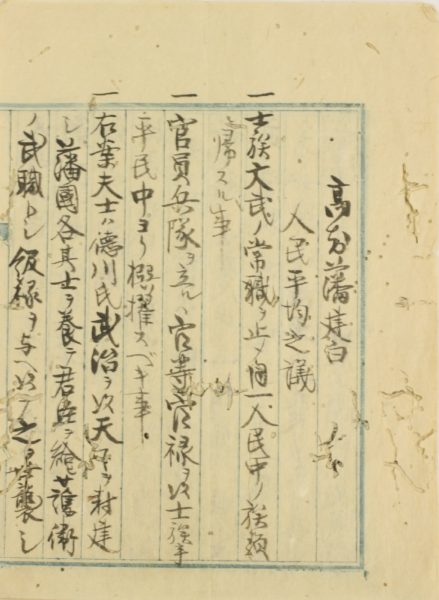 高知藩建白
人民平均之議
一 士族文武ノ常職ヲ止メ同一人民中ノ族類
ニ帰スル事
一 官員兵隊ヲ立ルハ官等官禄ヲ以士族
平民中ヨリ擢スベキ事
一 右業夫士ハ徳川氏武治ヲ以天下ヲ封建
シ藩国各其士ヲ養テ君臣ヲ
ノ武職トシ俸禄ヲ与ヘ以テ之ヲ世襲シ